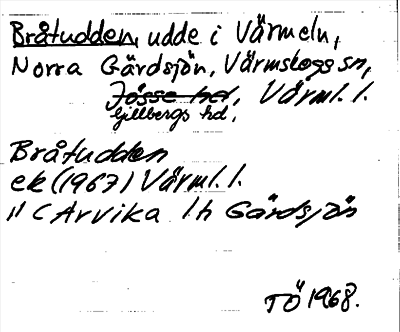 Bråtudden, udde i Värmeln,
Norra Gärdsjön, Värmskogs sn,
Jösse hd, Värml. l.
Gillbergs hd,
Bråtudden
ek (1967) Värml. l.
" (Arvika l.h Gärdsjön
TÖ 1968.